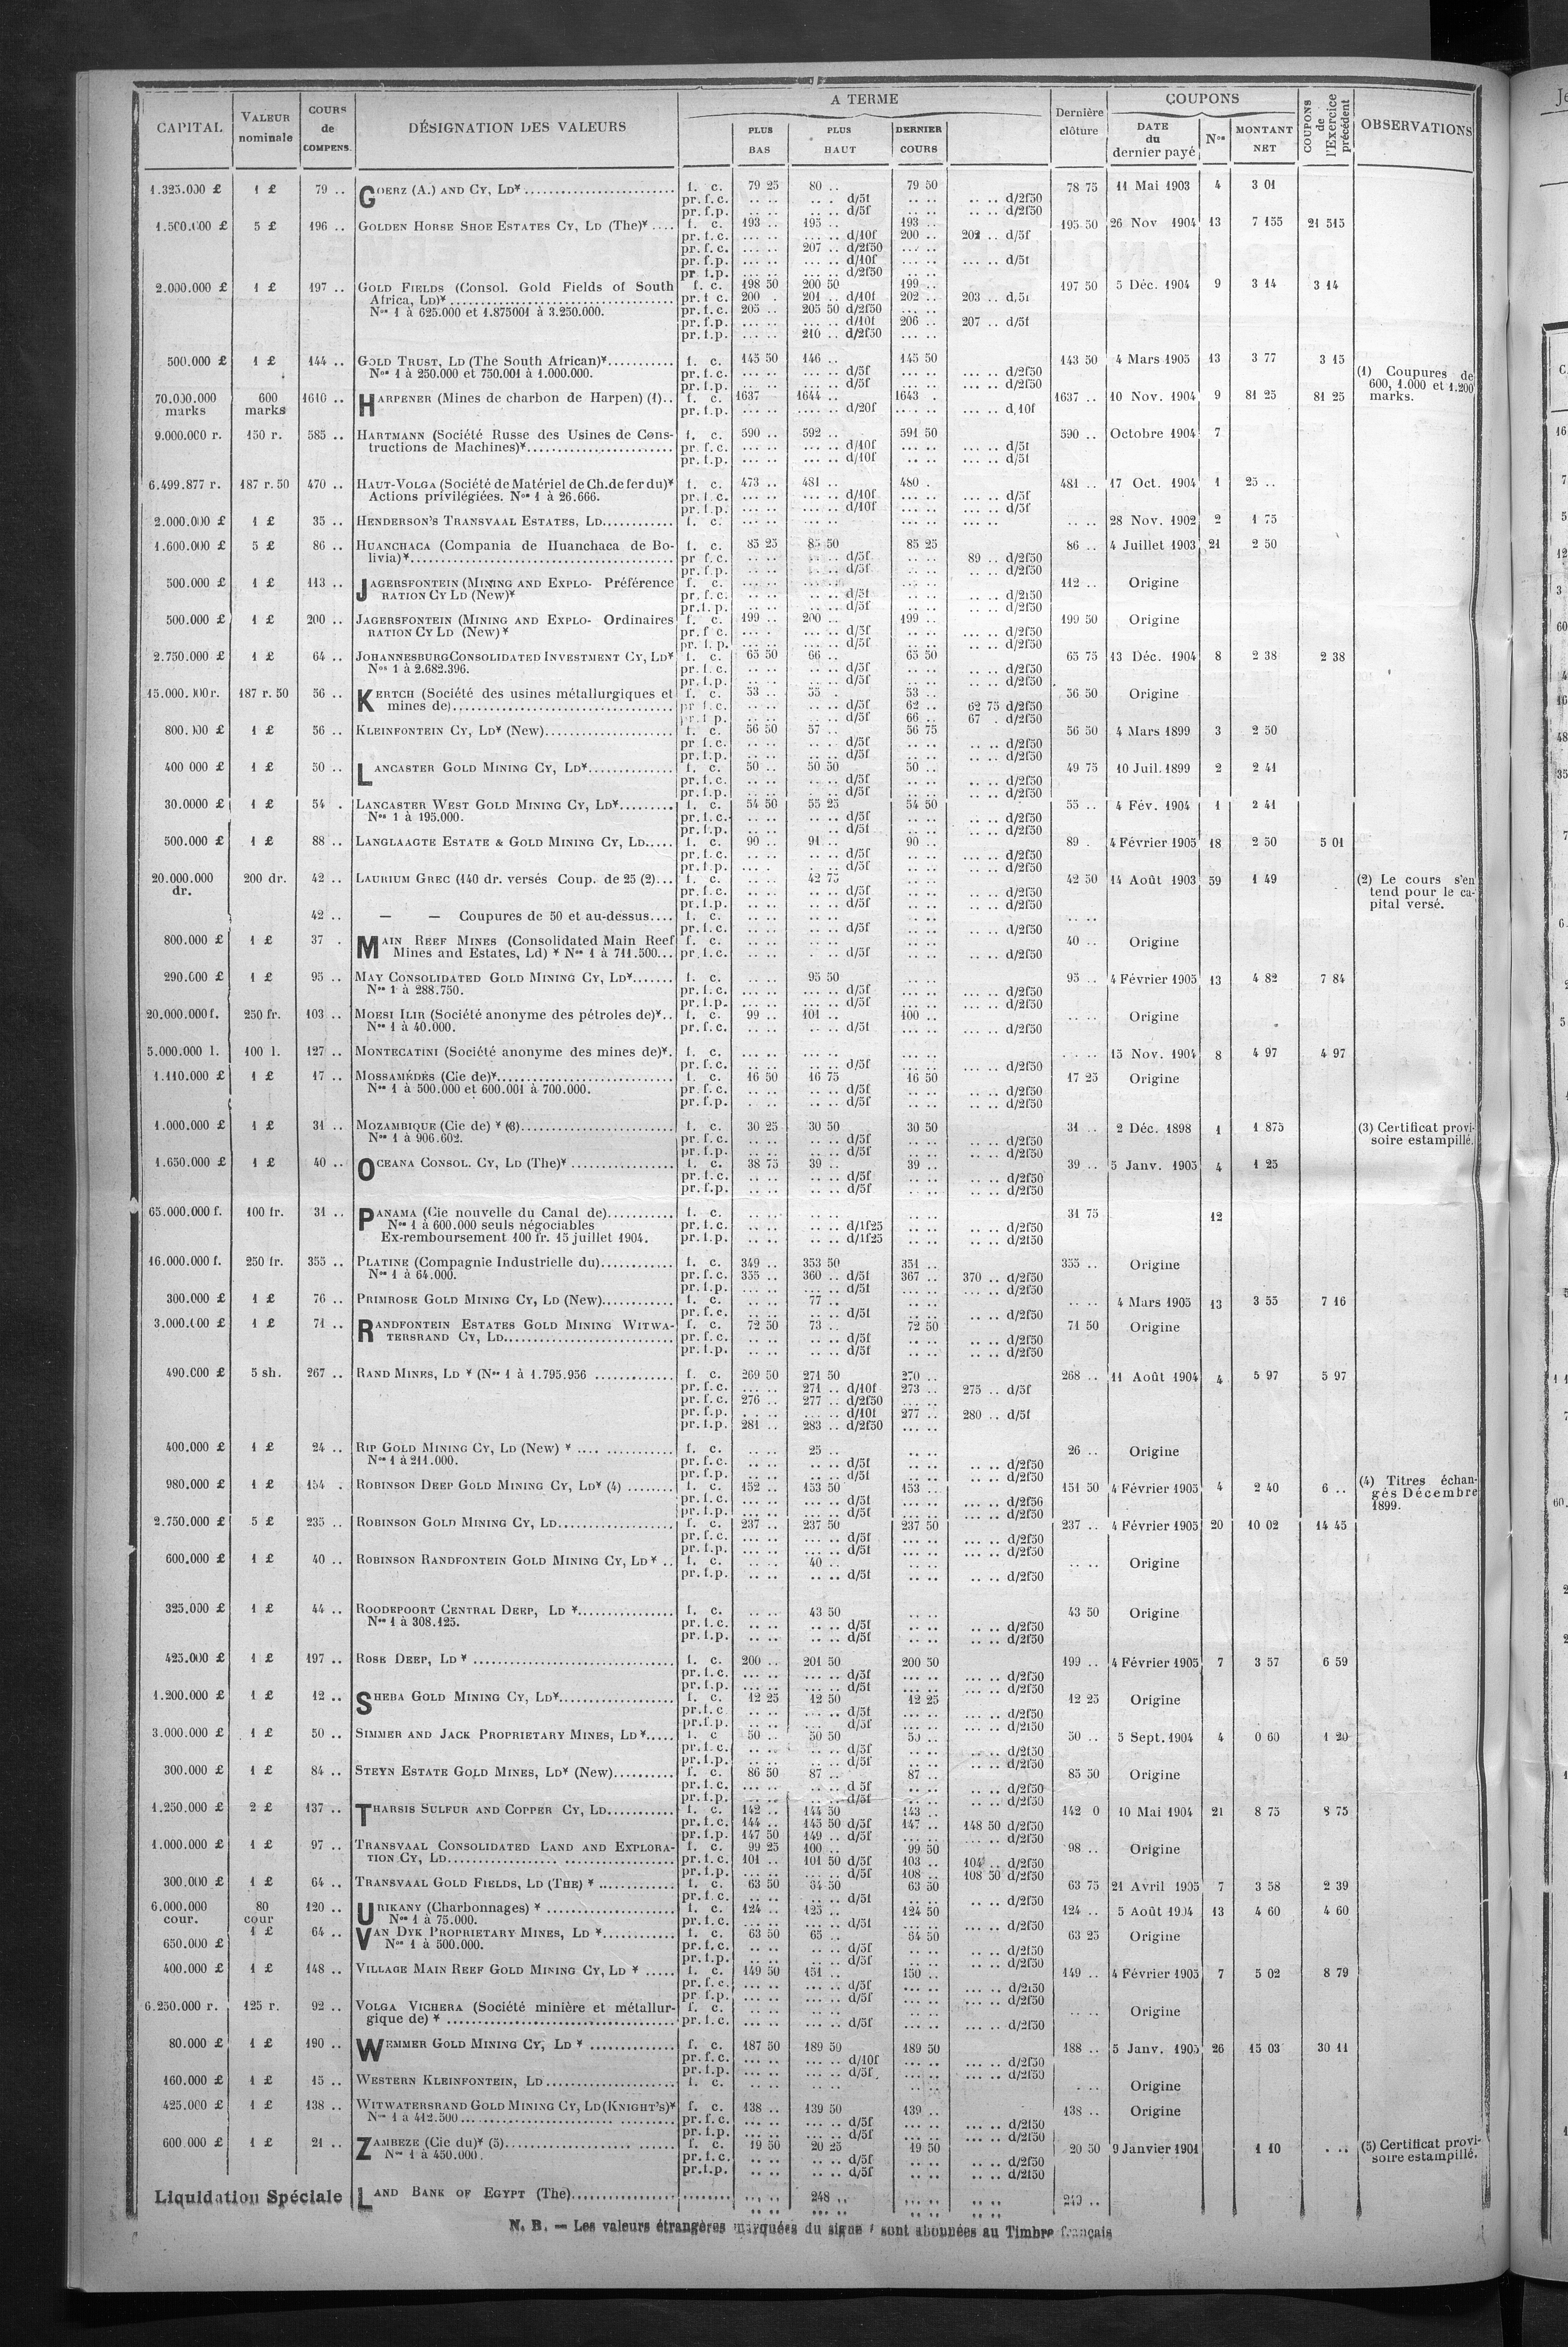 CAPITAL
VALEUR nominale
COURS de COMPENS.
DÉSIGNATION DES VALEURS
A TERME
PLUS BAS
PLUS HAUT
DERNIER COURS
Dernière clôture
COUPONS
DATE du dernier payé
Nos
MONTANT NET
COUPONS de l'Exercice précédent
OBSERVATIONS
1.325.000 £ 1 £ 79 .. GOERZ (A.) AND CY, LD¥ f. c. 79 25 80 .. 79 50 78 75 11 Mai 1903 4 3 01
pr. f. c. .. .. .. . d/5f .. .. .. .. d/2f50
pr. f. p. .. .. .. .. d/5f .. .. .. .. d/2f50
1.500.000 £ 5 £ 196 .. GOLDEN HORSE SHOE ESTATES CY, LD (The)¥ .... f. c. 193 .. 195 .. 193 .. 195 50 26 Nov 1904 13 7 155 21 515
pr. f. c. ... .. ... .. d/10f 200 .. 202 .. d/5f
pr. f. c. ... .. 207 .. d/2f50 ... ..
pr. f. p. ... .. ... .. d/10f ... .. ... .. d/5f
pr. f. p. ... .. ... .. d/2f50 ... ..
2.000.000 £ 1 £ 197 .. GOLD FIELDS (Consol. Gold Fields of South f. c. 198 50 200 50 199 .. 197 50 5 Déc. 1904 9 3 14 3 14
Africa, LD)¥ pr. f. c. 200 . 201 .. d/10f 202 .. 203 .. d/5f
Nos 1 à 625.000 et 1.875001 à 3.250.000. pr. f. c. 205 .. 205 50 d/2f50 ... ..
pr. f. p. ... .. ... .. d/10f 206 .. 207 .. d/5f
pr. f. p. ... .. 210 .. d/2f50 ... ..
500.000 £ 1 £ 144 .. GOLD TRUST, LD (The South African)¥ f. c. 145 50 146 .. 145 50 143 50 4 Mars 1905 13 3 77 3 15
Nos 1 à 250.000 et 750.001 à 1.000.000. pr. f. c. ... .. ... .. d/5f ... .. ... .. d/2f50
pr. f. p. ... .. ... .. d/5f ... .. ... .. d/2f50
(1) Coupures de 600, 1.000 et 1.200 marks.
70.000.000 marks 600 marks 1610 .. HARPENER (Mines de charbon de Harpen) (1).. f. c. 1637 1644 .. 1643 . 1637 .. 10 Nov. 1904 9 81 25 81 25
pr. f. p. .... .. .... .. d/20f .... .. ... .. d/10f
9.000.000 r. 150 r. 585 .. HARTMANN (Société Russe des Usines de Cons- f. c. 590 .. 592 .. 591 50 590 .. Octobre 1904 7
tructions de Machines)¥ pr. f. c. ... .. ... .. d/10f ... .. ... .. d/5f
pr. f. p. ... .. ... .. d/10f ... .. ... .. d/5f
6.499.877 r. 187 r. 50 470 .. HAUT-VOLGA (Société de Matériel de Ch. de fer du)¥ f. c. 473 .. 481 .. 480 . 481 .. 17 Oct. 1904 1 25 ..
Actions privilégiées. Nos 1 à 26.666. pr. f. c. ... .. ... .. d/10f ... .. ... .. d/5f
pr. f. p. ... .. ... .. d/10f ... .. ... .. d/5f
2.000.000 £ 1 £ 35 .. HENDERSON'S TRANSVAAL ESTATES, LD f. c. ... .. ... .. ... .. .. .. 28 Nov. 1902 2 1 75
1.600.000 £ 5 £ 86 .. HUANCHACA (Compania de Huanchaca de Bo- f. c. 85 25 85 50 85 25 86 .. 4 Juillet 1903 21 2 50
livia)¥ pr. f. c. .. .. .. .. d/5f .. .. 89 .. d/2f50
pr. f. p. .. .. .. .. d/5f .. .. .. .. d/2f50
500.000 £ 1 £ 113 .. JAGERSFONTEIN (MINING AND EXPLO- Préférence f. c. ... .. ... .. ... .. 112 .. Origine
RATION CY LD (New)¥ pr. f. c. ... .. ... .. d/5f ... .. ... .. d/2f50
pr. f. p. ... .. ... .. d/5f ... .. ... .. d/2f50
500.000 £ 1 £ 200 .. JAGERSFONTEIN (MINING AND EXPLO- Ordinaires f. c. 199 .. 200 .. 199 .. 199 50 Origine
RATION CY LD (New)¥ pr. f. c. ... . ... .. d/5f .. .. ... .. d/2f50
pr. f. p. ... .. ... .. d/5f ... .. ... .. d/2f50
2.750.000 £ 1 £ 64 .. JOHANNESBURG CONSOLIDATED INVESTMENT CY, LD¥ f. c. 65 50 66 .. 65 50 65 75 13 Déc. 1904 8 2 38 2 38
Nos 1 à 2.682.396. pr. f. c. .. .. .. .. d/5f .. .. .. .. d/2f50
pr. f. p. .. .. .. .. d/5f .. .. .. .. d/2f50
15.000.000 r. 187 r. 50 56 .. KERTCH (Société des usines métallurgiques et f. c. 53 .. 55 . 53 .. 56 50 Origine
mines de) pr f. c. .. .. .. .. d/5f 62 .. 62 75 d/2f50
pr. f. p. .. .. .. .. d/5f 66 .. 67 . d/2f50
800.000 £ 1 £ 56 .. KLEINFONTEIN CY, LD¥ (New) f. c. 56 50 57 .. 56 75 56 50 4 Mars 1899 3 2 50
pr. f. c. .. .. .. .. d/5f .. .. .. .. d/2f50
pr. f. p. .. .. .. .. d/5f .. .. .. .. d/2f50
400 000 £ 1 £ 50 .. LANCASTER GOLD MINING CY, LD¥ f. c. 50 .. 50 50 50 .. 49 75 10 Juil. 1899 2 2 41
pr. f. c. .. .. .. .. d/5f .. .. .. .. d/2f50
pr. f. p. .. .. .. .. d/5f .. .. .. .. d/2f50
30.0000 £ 1 £ 54 . LANCASTER WEST GOLD MINING CY, LD¥ f. c. 54 50 55 25 54 50 55 .. 4 Fév. 1904 1 2 41
Nos 1 à 195.000. pr. f. c. .. .. .. .. d/5f .. .. .. .. d/2f50
pr. f. p. .. .. .. .. d/5f .. .. .. .. d/2f50
500.000 £ 1 £ 88 .. LANGLAAGTE ESTATE & GOLD MINING CY, LD f. c. 90 .. 91 .. 90 .. 89 . 4 Février 1905 18 2 50 5 01
pr. f. c. .. .. .. .. d/5f .. .. ... .. d/2f50
pr. f. p. .. .. .. .. d/5f .. .. ... .. d/2f50
20.000.000 dr. 200 dr. 42 .. LAURIUM GREC (140 dr. versés Coup. de 25 (2) f. c. .. .. 42 75 .. .. 42 50 14 Août 1903 59 1 49
pr. f. c. .. .. .. .. d/5f .. .. .. .. d/2f50
pr. f. p. .. .. .. .. d/5f .. .. .. .. d/2f50
(2) Le cours s'entend pour le capital versé.
42 .. — — Coupures de 50 et au-dessus f. c. .. .. .. .. .. .. .. ..
pr. f. c. .. .. .. .. d/5f .. .. .. .. d/2f50
800.000 £ 1 £ 37 . MAIN REEF MINES (Consolidated Main Reef f. c. .. .. .. .. .. .. 40 .. Origine
Mines and Estates, Ld) ¥ Nos 1 à 711.500 pr. f. c. .. .. .. .. d/5f .. .. .. .. d/2f50
290.000 £ 1 £ 95 .. MAY CONSOLIDATED GOLD MINING CY, LD¥ f. c. .. .. 95 50 .. .. 95 .. 4 Février 1905 13 4 82 7 84
Nos 1 à 288.750. pr. f. c. ... .. ... .. d/5f ... .. ... .. d/2f50
pr. f. p. ... .. ... .. d/5f ... .. ... .. d/2f50
20.000.000 f. 250 fr. 103 .. MOESI ILIR (Société anonyme des pétroles de)¥ f. c. 99 .. 101 .. 100 .. .. .. Origine
Nos 1 à 40.000. pr. f. c. ... .. ... .. d/5f ... .. ... .. d/2f50
5.000.000 l. 100 l. 127 .. MONTECATINI (Société anonyme des mines de)¥. f. c. ... .. ... .. ... .. ... .. 15 Nov. 1904 8 4 97 4 97
pr. f. c. ... .. ... .. d/5f ... .. ... .. d/2f50
1.110.000 £ 1 £ 17 .. MOSSAMÉDÈS (Cie de)¥ f. c. 16 50 16 75 16 50 17 25 Origine
Nos 1 à 500.000 et 600.001 à 700.000. pr. f. c. .. .. .. .. d/5f .. .. .. .. d/2f50
pr. f. p. .. .. .. .. d/5f .. .. .. .. d/2f50
1.000.000 £ 1 £ 31 .. MOZAMBIQUE (Cie de) ¥ (3) f. c. 30 25 30 50 30 50 31 .. 2 Déc. 1898 1 1 875
Nos 1 à 906.602. pr. f. c. .. .. .. .. d/5f .. .. .. .. d/2f50
pr. f. p. .. .. .. .. d/5f .. .. .. .. d/2f50
(3) Certificat provisoire estampillé.
1.650.000 £ 1 £ 40 .. OCEANA CONSOL. CY, LD (The)¥ f. c. 38 75 39 .. 39 .. 39 .. 5 Janv. 1905 4 1 25
pr. f. c. .. .. .. .. d/5f .. .. .. .. d/2f50
pr. f. p. .. .. .. .. d/5f .. .. .. .. d/2f50
65.000.000 f. 100 fr. 31 .. PANAMA (Cie nouvelle du Canal de) f. c. .. .. .. .. .. .. 31 75 12
Nos 1 à 600.000 seuls négociables pr. f. c. .. .. .. .. d/1f25 .. .. .. .. d/2f50
Ex-remboursement 100 fr. 15 juillet 1904. pr. f. p. .. .. .. .. d/1f25 .. .. .. .. d/2f50
16.000.000 f. 250 fr. 355 .. PLATINE (Compagnie Industrielle du) f. c. 349 .. 353 50 351 .. 355 .. Origine
Nos 1 à 64.000. pr. f. c. 355 .. 360 .. d/5f 367 .. 370 .. d/2f50
pr. f. p. ... .. ... .. d/5f ... .. ... .. d/2f50
300.000 £ 1 £ 76 .. PRIMROSE GOLD MINING CY, LD (New) f. c. .. .. 77 .. .. .. .. .. 4 Mars 1905 13 3 55 7 16
pr. f. c. .. .. .. .. d/5f .. .. .. .. d/2f50
3.000.000 £ 1 £ 71 .. RANDFONTEIN ESTATES GOLD MINING WITWA- f. c. 72 50 73 .. 72 50 71 50 Origine
TERSRAND CY, LD pr. f. c. .. .. .. .. d/5f .. .. .. .. d/2f50
pr. f. p. .. .. .. .. d/5f .. .. .. .. d/2f50
490.000 £ 5 sh. 267 .. RAND MINES, LD ¥ (Nos 1 à 1.795.956 f. c. 269 50 271 50 270 .. 268 .. 11 Août 1904 4 5 97 5 97
pr. f. c. ... .. 271 .. d/10f 273 .. 275 .. d/5f
pr. f. c. 276 .. 277 .. d/2f50 ... ..
pr. f. p. . . .. ... .. d/10f 277 .. 280 .. d/5f
pr. f. p. 281 .. 283 .. d/2f50 ... ..
400.000 £ 1 £ 24 .. RIP GOLD MINING CY, LD (New) ¥ f. c. .. .. 25 .. .. .. 26 .. Origine
Nos 1 à 211.000. pr. f. c. .. .. .. .. d/5f .. .. .. .. d/2f50
pr. f. p. .. .. .. .. d/5f .. .. .. .. d/2f50
980.000 £ 1 £ 154 . ROBINSON DEEP GOLD MINING CY, LD¥ (4) f. c. 152 .. 153 50 153 .. 151 50 4 Février 1905 4 2 40 6 ..
pr. f. c. ... .. ... .. d/5f ... .. ... .. d/2f56
pr. f. p. ... .. ... .. d/5f ... .. ... .. d/2f50
(4) Titres échangés Décembre 1899.
2.750.000 £ 5 £ 235 .. ROBINSON GOLD MINING CY, LD f. c. 237 .. 237 50 237 50 237 .. 4 Février 1905 20 10 02 14 45
pr. f. c. ... .. ... .. d/5f ... .. ... .. d/2f50
pr. f. p. ... .. ... .. d/5f ... .. ... .. d/2f50
600.000 £ 1 £ 40 .. ROBINSON RANDFONTEIN GOLD MINING CY, LD¥ f. c. .. .. 40 .. .. .. .. .. Origine
pr. f. p. .. .. .. .. d/5f .. .. .. .. d/2f50
325.000 £ 1 £ 44 .. ROODEPOORT CENTRAL DEEP, LD ¥ f. c. .. .. 43 50 .. .. 43 50 Origine
Nos 1 à 308.125. pr. f. c. .. .. .. .. d/5f .. .. .. .. d/2f50
pr. f. p. .. .. .. .. d/5f .. .. .. .. d/2f50
425.000 £ 1 £ 197 .. ROSE DEEP, LD ¥ f. c. 200 .. 201 50 200 50 199 .. 4 Février 1905 7 3 57 6 59
pr. f. c. ... .. ... .. d/5f ... .. ... .. d/2f50
pr. f. p. ... .. ... .. d/5f ... .. ... .. d/2f50
1.200.000 £ 1 £ 12 .. SHEBA GOLD MINING CY, LD¥ f. c. 12 25 12 50 12 25 12 25 Origine
pr. f. c. .. .. .. .. d/5f .. .. .. .. d/2f50
pr. f. p. .. .. .. .. d/5f .. .. .. .. d/2f50
3.000.000 £ 1 £ 50 .. SIMMER AND JACK PROPRIETARY MINES, LD¥ f. c 50 .. 50 50 50 .. 50 .. 5 Sept. 1904 4 0 60 1 20
pr. f. c. .. .. .. .. d/5f .. .. .. .. d/2f50
pr. f. p. .. .. .. .. d/5f .. .. .. .. d/2f50
300.000 £ 1 £ 84 .. STEYN ESTATE GOLD MINES, LD¥ (New) f. c. 86 50 87 .. 87 .. 85 50 Origine
pr. f. c. .. .. .. .. d 5f .. .. .. .. d/2f50
pr. f. p. .. .. .. .. d/5f .. .. .. .. d/2f50
1.250.000 £ 2 £ 137 .. THARSIS SULFUR AND COPPER CY, LD f. c. 142 .. 144 50 143 .. 142 0 10 Mai 1904 21 8 75 8 75
pr. f. c. 144 .. 145 50 d/5f 147 .. 148 50 d/2f50
pr. f. p. 147 50 149 .. d/5f ... .. ... .. d/2f50
1.000.000 £ 1 £ 97 .. TRANSVAAL CONSOLIDATED LAND AND EXPLORA- f. c. 99 25 100 .. 99 50 98 .. Origine
TION CY, LD pr. f. c. 101 .. 101 50 d/5f 103 .. 104 .. d/2f50
pr. f. p. ... .. ... .. d/5f 108 .. 108 50 d/2f50
300.000 £ 1 £ 64 .. TRANSVAAL GOLD FIELDS, LD (THE) ¥ f. c. 63 50 64 50 63 50 63 75 21 Avril 1905 7 3 58 2 39
pr. f. c. .. .. .. .. d/5f .. .. .. .. d/2f50
6.000.000 cour. 80 cour 120 .. URIKANY (Charbonnages) ¥ f. c. 124 .. 125 .. 124 50 124 .. 5 Août 1904 13 4 60 4 60
Nos 1 à 75.000. pr. f. c. ... .. ... .. d/5f ... .. ... .. d/2f50
650.000 £ 1 £ 64 .. VAN DYK PROPRIETARY MINES, LD ¥ f. c. 63 50 65 .. 64 50 63 25 Origine
Nos 1 à 500.000. pr. f. c. .. .. .. .. d/5f .. .. .. .. d/2f50
pr. f. p. .. .. .. .. d/5f .. .. .. .. d/2f50
400.000 £ 1 £ 148 .. VILLAGE MAIN REEF GOLD MINING CY, LD ¥ f. c. 149 50 151 .. 150 .. 149 .. 4 Février 1905 7 5 02 8 79
pr. f. c. ... .. ... .. d/5f ... .. ... .. d/2f50
pr f. p. ... .. ... .. d/5f ... .. ... .. d/2f50
6.250.000 r. 125 r. 92 .. VOLGA VICHERA (Société minière et métallur- f. c. .. .. .. .. .. .. .. .. Origine
gique de) ¥ pr. f. c. ... .. ... .. d/5f ... .. ... .. d/2f50
80.000 £ 1 £ 190 .. WEMMER GOLD MINING CY, LD ¥ f. c. 187 50 189 50 189 50 188 .. 5 Janv. 1905 26 15 03 30 11
pr. f. c. ... .. ... .. d/10f ... .. ... .. d/2f50
pr. f. p. ... .. ... .. d/5f ... .. ... .. d/2f50
160.000 £ 1 £ 15 .. WESTERN KLEINFONTEIN, LD f. c. .. .. .. .. .. .. . .. Origine
425.000 £ 1 £ 138 .. WITWATERSRAND GOLD MINING CY, LD (KNIGHT'S)¥ f. c. 138 .. 139 50 139 .. 138 .. Origine
Nos 1 à 412.500 pr. f. c. ... .. ... .. d/5f ... .. ... .. d/2f50
pr. f. p. ... .. ... .. d/5f ... .. ... .. d/2f50
600.000 £ 1 £ 21 .. ZAMBEZE (Cie du)¥ (5) f. c. 19 50 20 25 19 50 20 50 9 Janvier 1901 1 10 . ..
Nos 1 à 450.000. pr. f. c. .. .. .. .. d/5f .. .. .. .. d/2f50
pr. f. p. .. .. .. .. d/5f .. .. .. .. d/2f50
(5) Certificat provisoire estampillé.
Liquidation Spéciale LAND BANK OF EGYPT (The) 248 ..
N. B. — Les valeurs étrangères marquées du signe ¥ sont abonnées au Timbre français